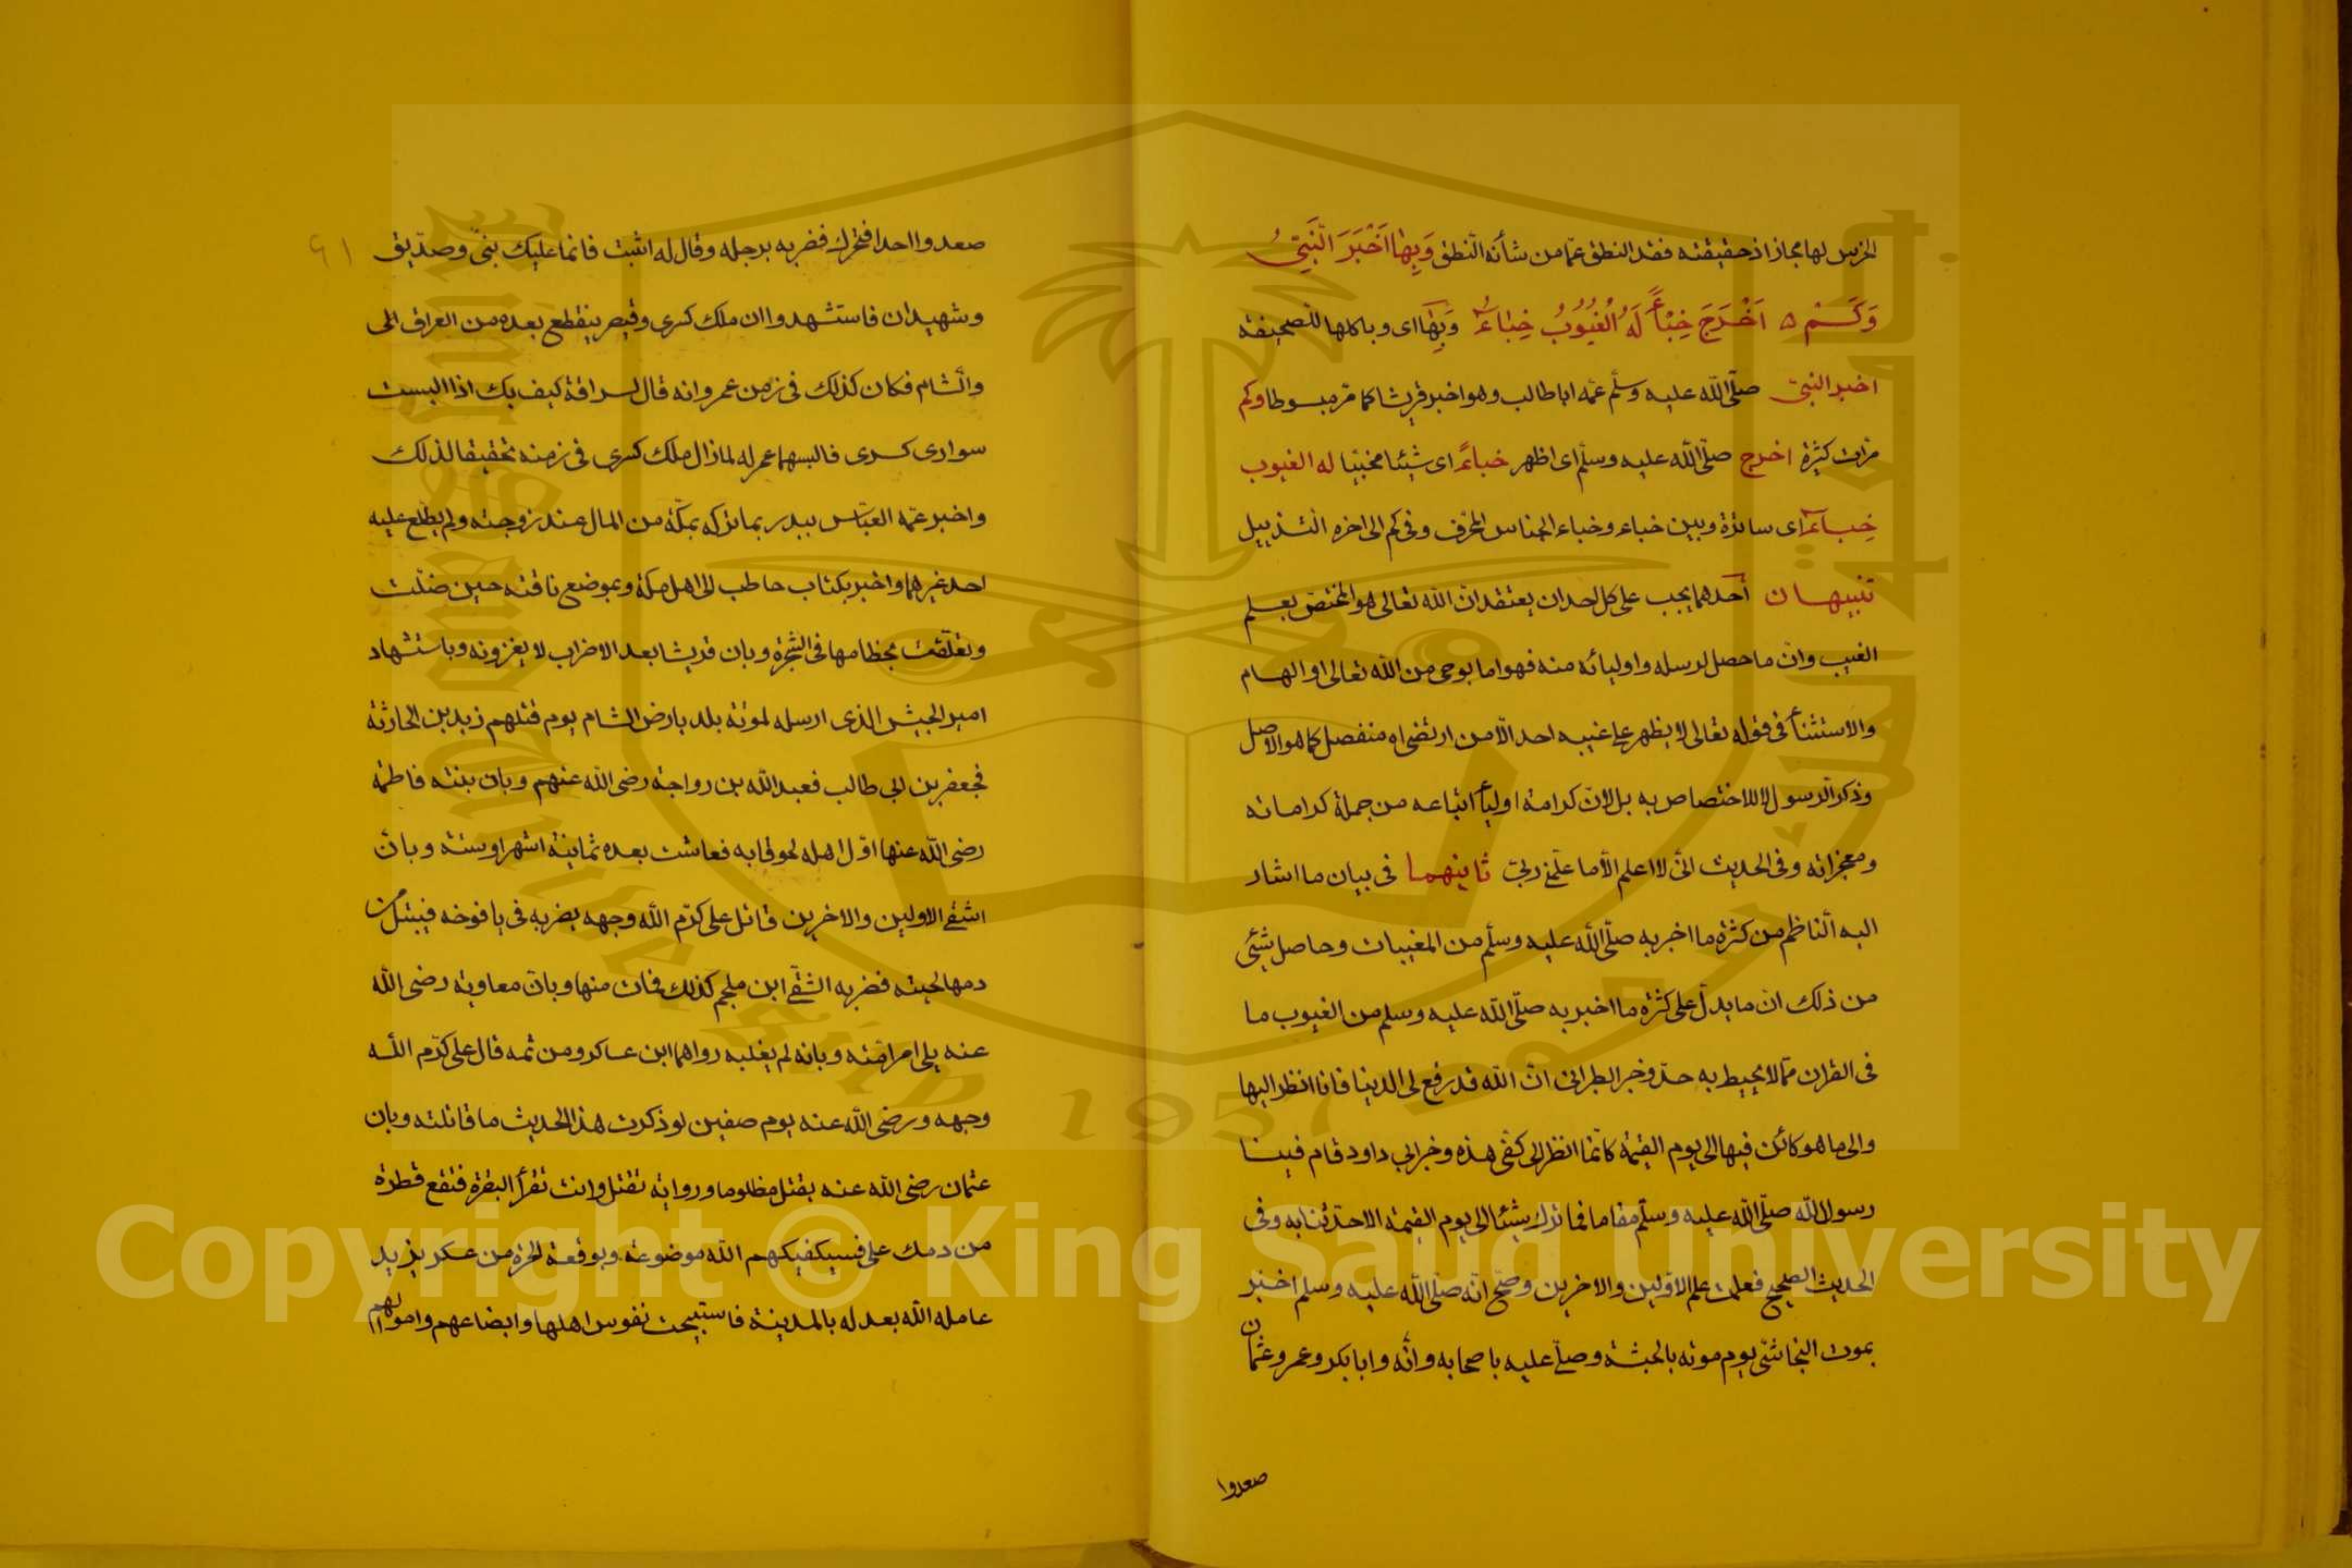 الخرس لها مجازا اذ حقيقته فقد النطق عمّا من شأنه النّطق وَبِهَا اَخْبَرَ النَّبِيُّ
وَكَمْ ه اَخْرَجَ خِبْأً لَهُ الْغُيُوبُ خِبَاءُ وَبِهَا اى وباكلها للصحيفة
اخبر النبى صلّى اللّه عليه وسلّم عمّه ابا طالب وهو اخبر قريشا كما مرّ مبسوطا وكم
مرّات كثيرة اخرج صلّى اللّه عليه وسلّم اى اظهر خباءً اى شيئا مخبيّا له الغيوب
خِباءٌ اى ساترة وبين خباء وخباء الجناس المحرّف وفى كم الى اخره التذييل
تنبيهان أحدهما يجب على كل احد ان يعتقد انّ اللّه تعالى هو المختصّ بعلم
الغيب وانّ ما حصل لرسله واوليائه منه فهو اما بوحى من اللّه تعالى او الهام
والاستثنأ فى قوله تعالى لا يظهر على غيبه احد الّا من ارتضى اه منفصل كما هو الاصل
وذكر الرّسول لا للاختصاص به بل لانّ كرامة اوليأ اتباعه من جملة كراماته
ومعجزاته وفى الحديث انّى لا اعلم الّا ما علّمنى ربّى ثانيهما فى بيان ما اشار
اليه النّاظم من كثرة ما اخبر به صلّى اللّه عليه وسلّم من المغيبات وحاصل شئى
من ذلك انّ ما يدلّ على كثرة ما اخبر به صلّى اللّه عليه وسلم من الغيوب ما
فى القران ممّا لا يحيط به حدّ وخبر الطبرانى انّ اللّه قد رفع لى الدينا فانا انظر اليها
والى ما هو كائن فيها الى يوم القيمة كانّما انظر الى كفّى هذه وخبر ابى داود قام فينا
رسول اللّه صلّى اللّه عليه وسلّم مقاما فما ترك شيئا الى يوم القيمة الا حدّثنا به وفى
الحديث الصحيح فعلمت علم الاوّلين والاخرين وصحّ انّه صلّى اللّه عليه وسلم اخبر
بموت النجاشىّ يوم موته بالحبشة وصلّى عليه باصحابه وانّه وابا بكر وعمر وعثمان
صعدوا
٦١
صعدوا احدا فتحرك فضربه برجله وقال له اثبت فانما عليك نبىّ وصدّيق
وشهيدان فاستشهدوا ان ملك كسرى وقيصر ينقطع بعده من العراق الى
والشّام فكان كذلك فى زمن عمر وانه قال لسراقة كيف بك اذا البست
سوارى كسرى فالبسهما عمر له لما زال ملك كسرى فى زمنه تحقيقا لذلك
واخبر عمّه العبّاس ببدر بما تركه بمكّة من المال عند زوجته ولم يطّلع عليه
احد غيرهما واخبر بكتاب حاطب الى اهل مكة وبموضع ناقته حين ضلّت
وتعلّقت بخطامها فى الشجرة وبان قريشا بعد الاحزاب لا يغزونه وباستشهاد
امير الجيش الذى ارسله لموتة بلد بارض الشام يوم قتلهم زيد بن الحارثة
فجعفر بن ابى طالب فعبد اللّه بن رواحة رضى اللّه عنهم وبان بنته فاطمة
رضى اللّه عنها اوّل اهله لحوقا به فعاشت بعده ثمانية اشهر او ستة وبانّ
اشقى الاولين والاخرين قاتل على كرّم اللّه وجهه يضربه فى يافوخه فيبتل من
دمها لحيته فضربه الشقىّ ابن ملجم كذلك فمات منها وبانّ معاوية رضى اللّه
عنه يلى امر امّته وبانه لم يغلبه رواهما ابن عساكر ومن ثمه قال على كرّم اللّه
وجهه ورضى اللّه عنه يوم صفين لو ذكرت هذا الحديث ما قاتلته وبان
عثمان رضى اللّه عنه يقتل مظلوما ورواية تقتل وانت تقرأ البقرة فتقع قطرة
من دمك على فسيكفيكهم اللّه موضوعة وبوقعة الحرة من عسكر يزيد
عامله اللّه بعدله بالمدينة فاستبيحت نفوس اهلها وابضاعهم واموالهم
Copyright © King Saud University
1957